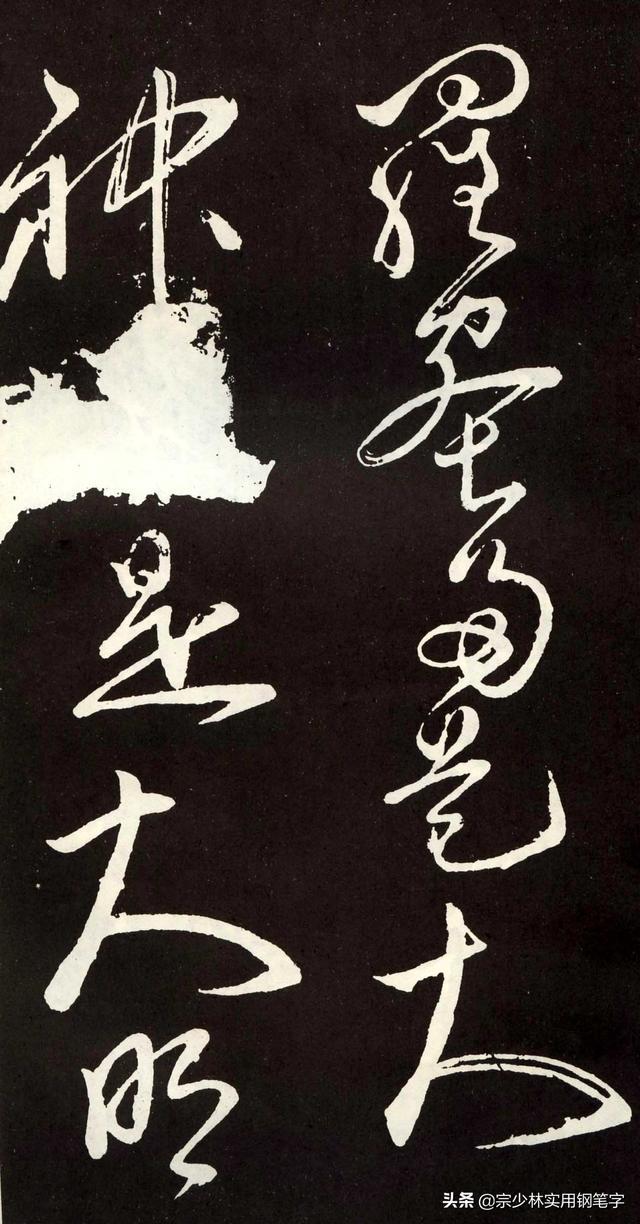 羅蜜多是大
神是大明
头条 @宗少林实用钢笔字